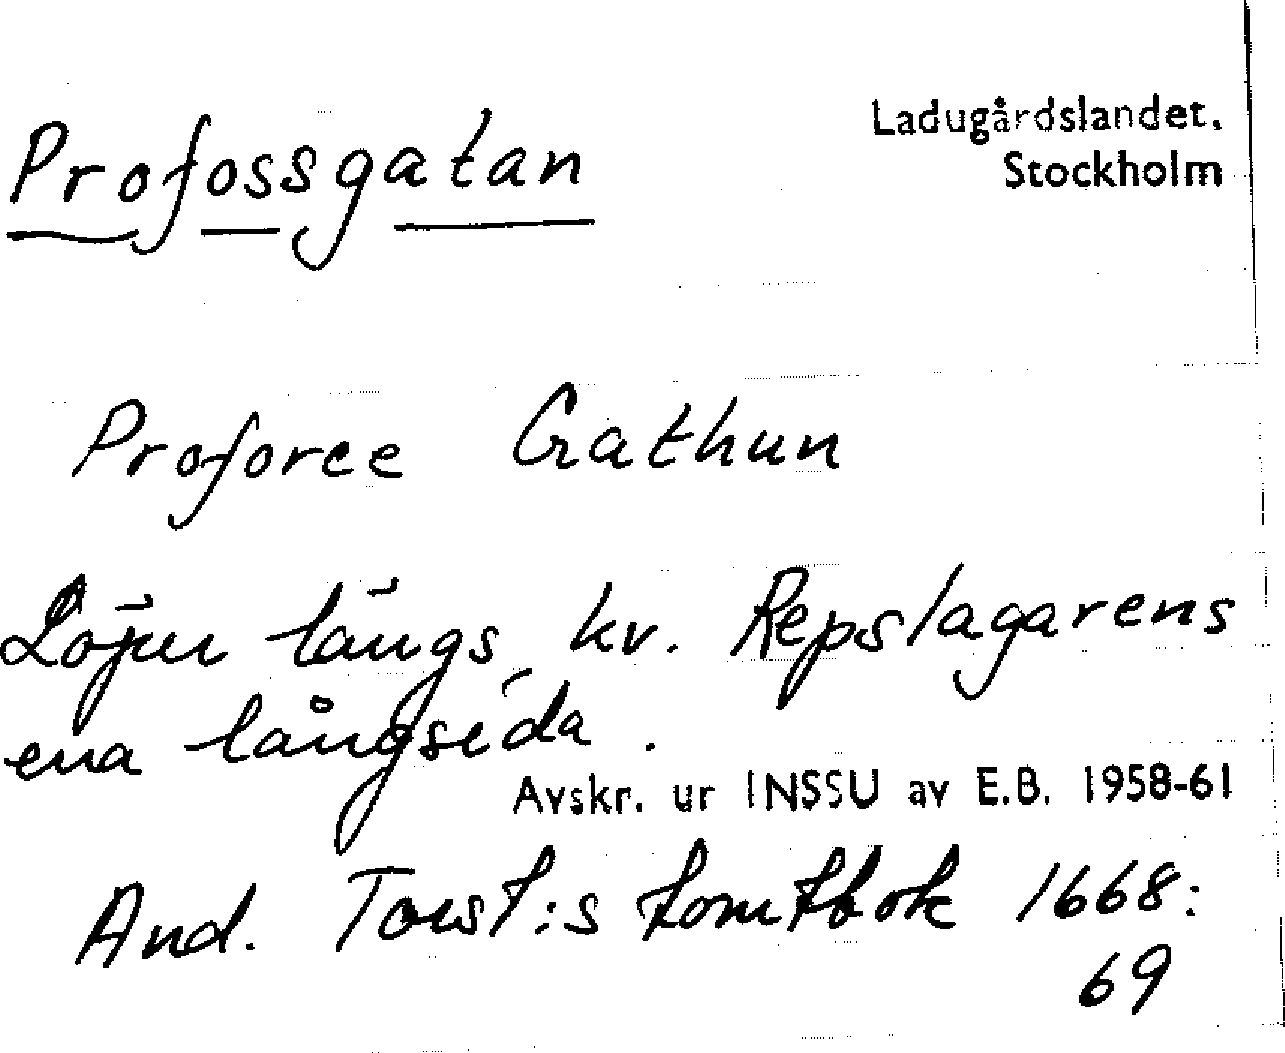 Profossgatan
Ladugårdslandet.
Stockholm
Proforee Gathun
Löper längs kv. Repslagarens
ena långsida.
Avskr. ur INSSU av E.B. 1958-61
And. Torst:s tomtbok 1668:
69